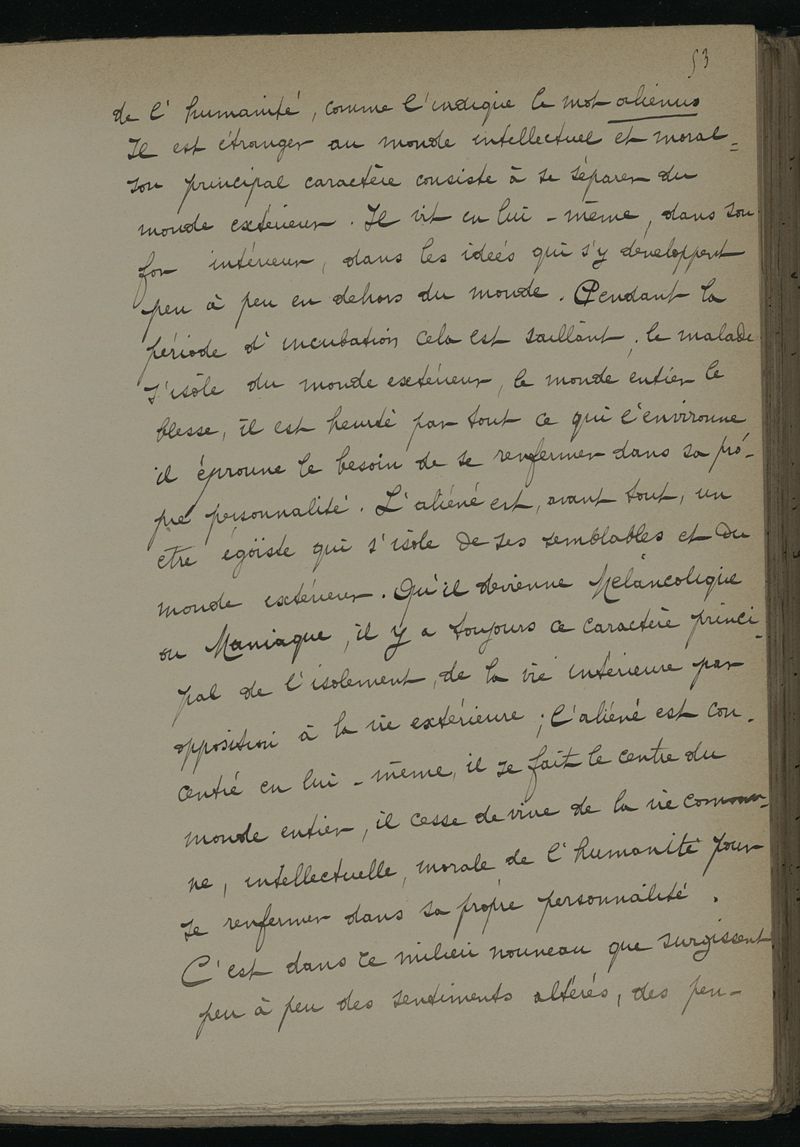 53
de l' humanité, comme l'indique le mot aliénus
Il est étranger au monde intellectuel et moral =
son principal caractère consiste à se séparer du
monde extérieur. Il vit en lui-même, dans son
for intérieur, dans les ideés qui s'y developpent
peu à peu en dehors du monde. Pendant la
période d' incubation cela est saillant; le malade
s'isôle du monde extérieur, le monde entier le
blesse, il est heurté par tout ce qui l'environne
il éprouve le besoin de se renfermer dans sa pro-
pre personnalité. L'aliéné est, avant tout, un
etre égoïste qui s'isôle de ses semblables et du
monde extérieur. Qu'il devienne Mélancolique
ou Maniaque, il y a toujours ce caractère princi-
pal de l'isolement, de la vie intérieure par
opposition à la vie extérieure; l'aliéné est con-
centré en lui-même, il se fait le centre du
monde entier, il cesse de vivre de la vie commu-
ne, intellectuelle, morale de l'humanité pour
se renfermer dans sa propre personnalité.
C'est dans ce milieu nouveau que surgissent
peu à peu des sentiments altérés, des pen-